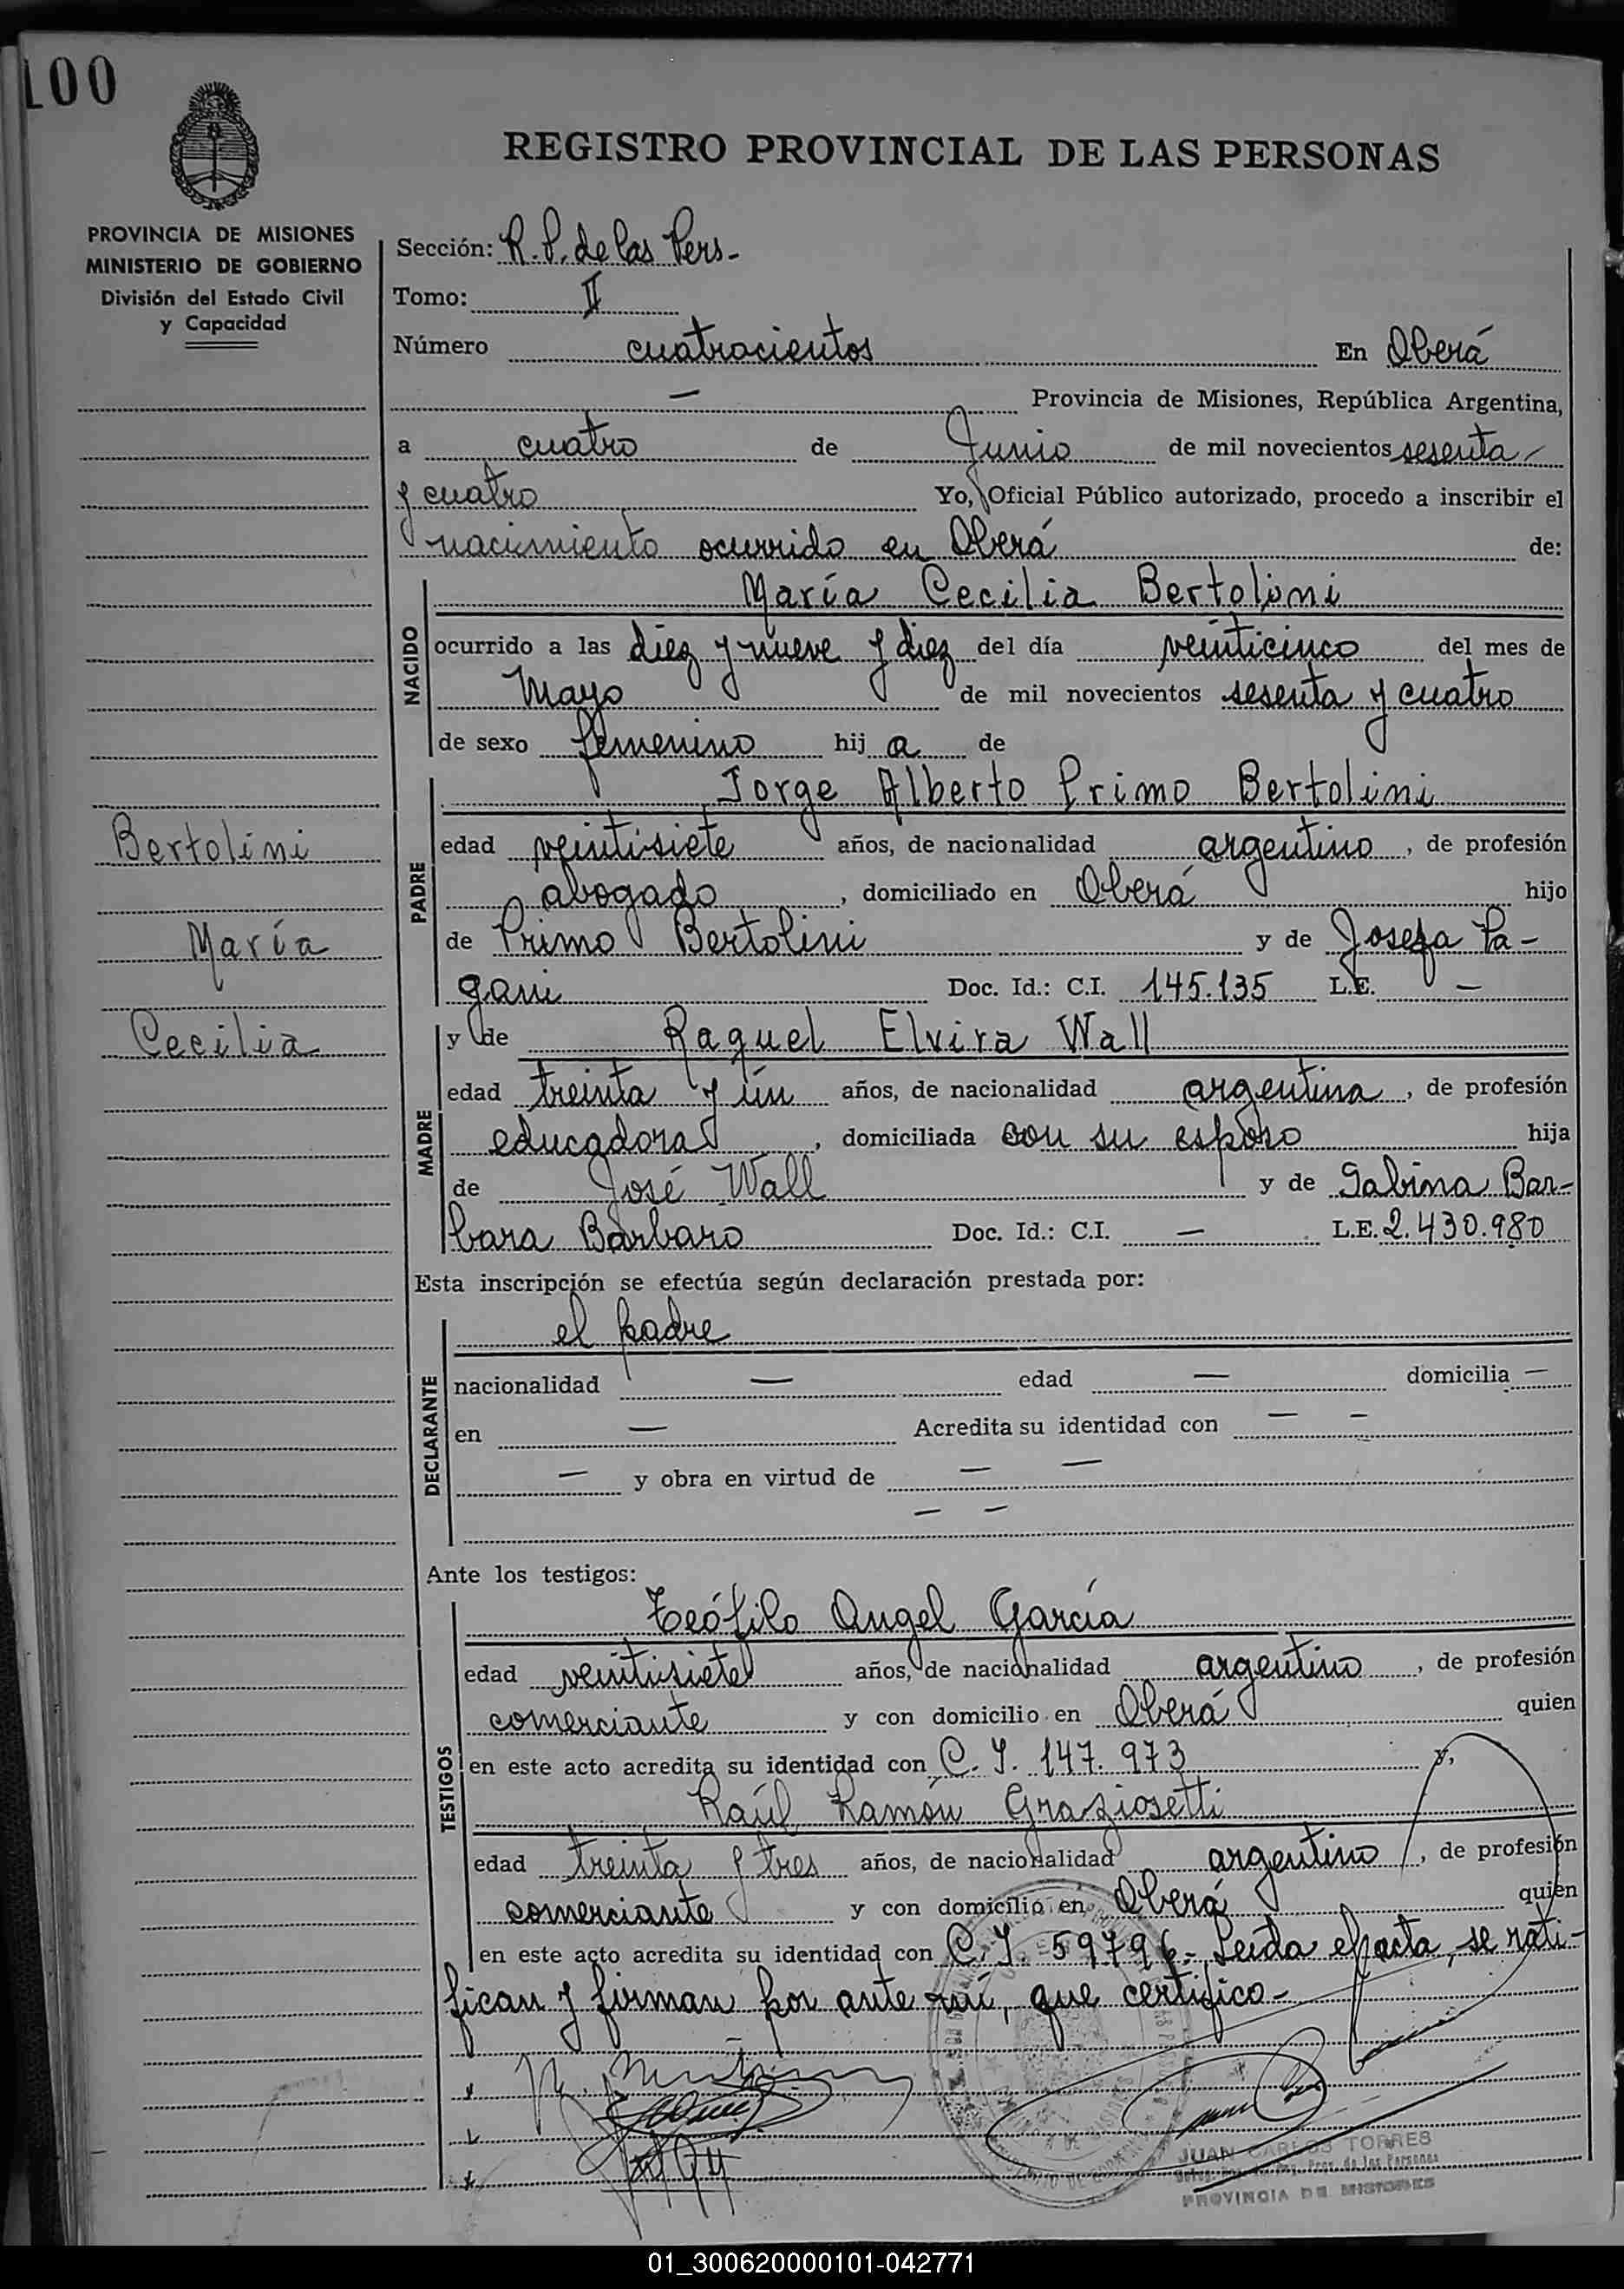 100
REGISTRO PROVINCIAL DE LAS PERSONAS
PROVINCIA DE MISIONES
MINISTERIO DE GOBIERNO
División del Estado Civil
y Capacidad
Sección: R. P. de las Pers-
Tomo: II
Número cuatrocientos En Oberá
— Provincia de Misiones, República Argentina,
a cuatro de Junio de mil novecientos sesenta
y cuatro Yo, Oficial Público autorizado, procedo a inscribir el
nacimiento ocurrido en Oberá de:
NACIDO
María Cecilia Bertolini
ocurrido a las diez y nueve y diez del día veinticinco del mes de
Mayo de mil novecientos sesenta y cuatro
de sexo femenino hij a de
PADRE
Jorge Alberto Primo Bertolini
edad veintisiete años, de nacionalidad argentino, de profesión
abogado, domiciliado en Oberá hijo
de Primo Bertolini y de Josefa Pa-
gani Doc. Id.: C.I. 145.135 L.E. —
Bertolini
María
Cecilia
MADRE
y de Raquel Elvira Wall
edad treinta y ún años, de nacionalidad argentina, de profesión
educadora, domiciliada con su esposo hija
de José Wall y de Sabina Bar-
bara Bárbaro Doc. Id.: C.I. — L.E. 2.430.980
Esta inscripción se efectúa según declaración prestada por:
DECLARANTE
el padre
nacionalidad — edad — domicilia —
en — Acredita su identidad con — —
— y obra en virtud de — —
— —
Ante los testigos:
TESTIGOS
Teófilo Angel García
edad veintisiete años, de nacionalidad argentino, de profesión
comerciante y con domicilio en Oberá quien
en este acto acredita su identidad con C. I. 147.973 y,
Raúl Ramón Graziosetti
edad treinta y tres años, de nacionalidad argentino, de profesión
comerciante y con domicilio en Oberá quien
en este acto acredita su identidad con C. I. 59796.- Leída el acta, se rati-
fican y firman por ante mí, que certifico-
JUAN CARLOS TORRES
Prov. de las Personas
PROVINCIA DE MISIONES
01_300620000101-042771